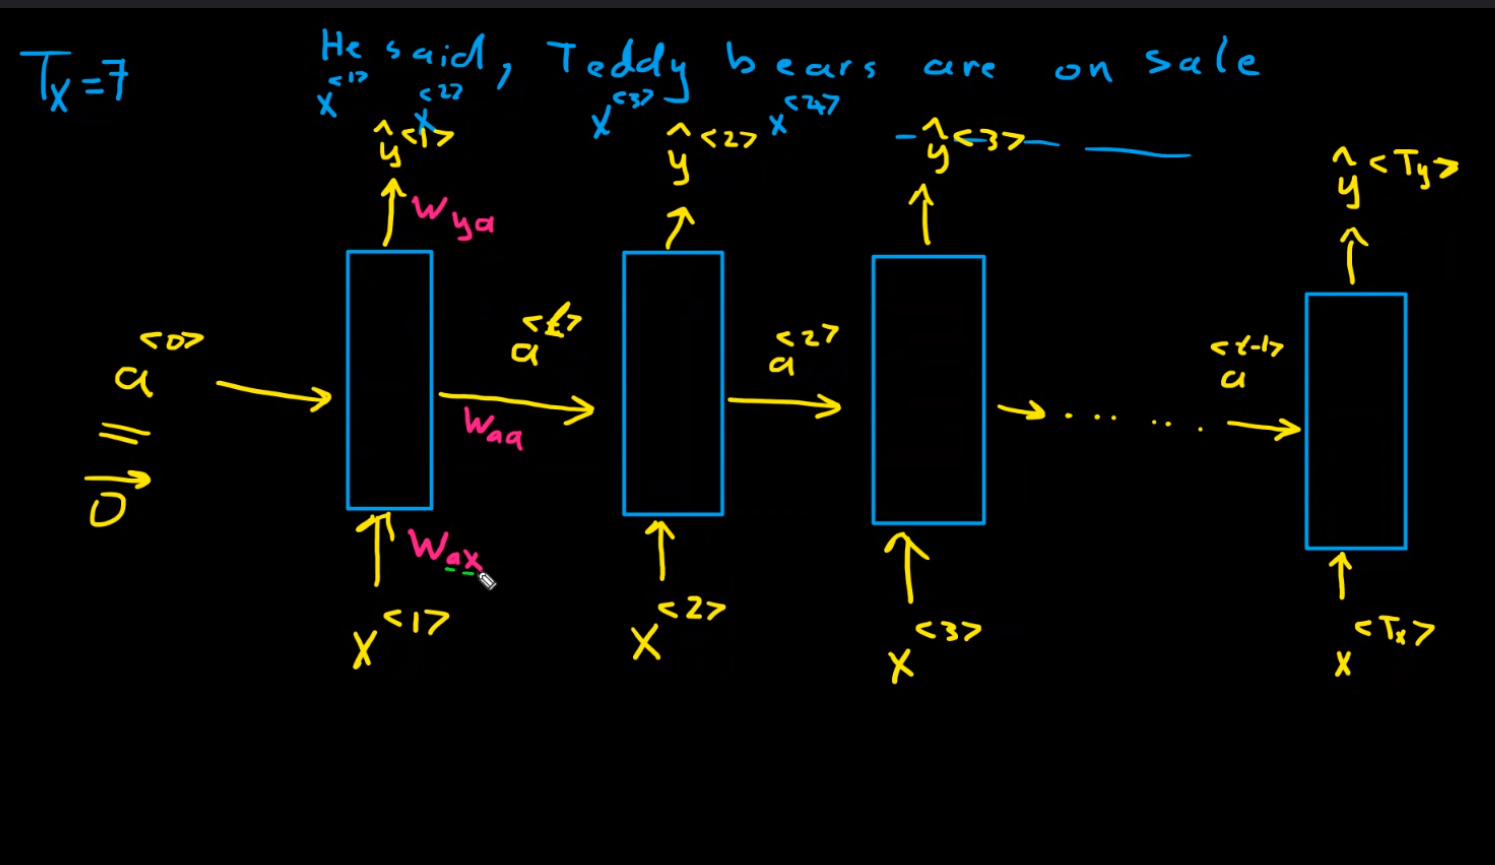 Tx=7
He said, Teddy bears are on sale
x<1> x<2> x<3> x<4>
ŷ<1> ŷ<2> ŷ<3> ŷ<Ty>
Wya
a<0> a<2> a<t-1>
=
Waa
0
Wax
x<1> x<2> x<3> x<Tx>